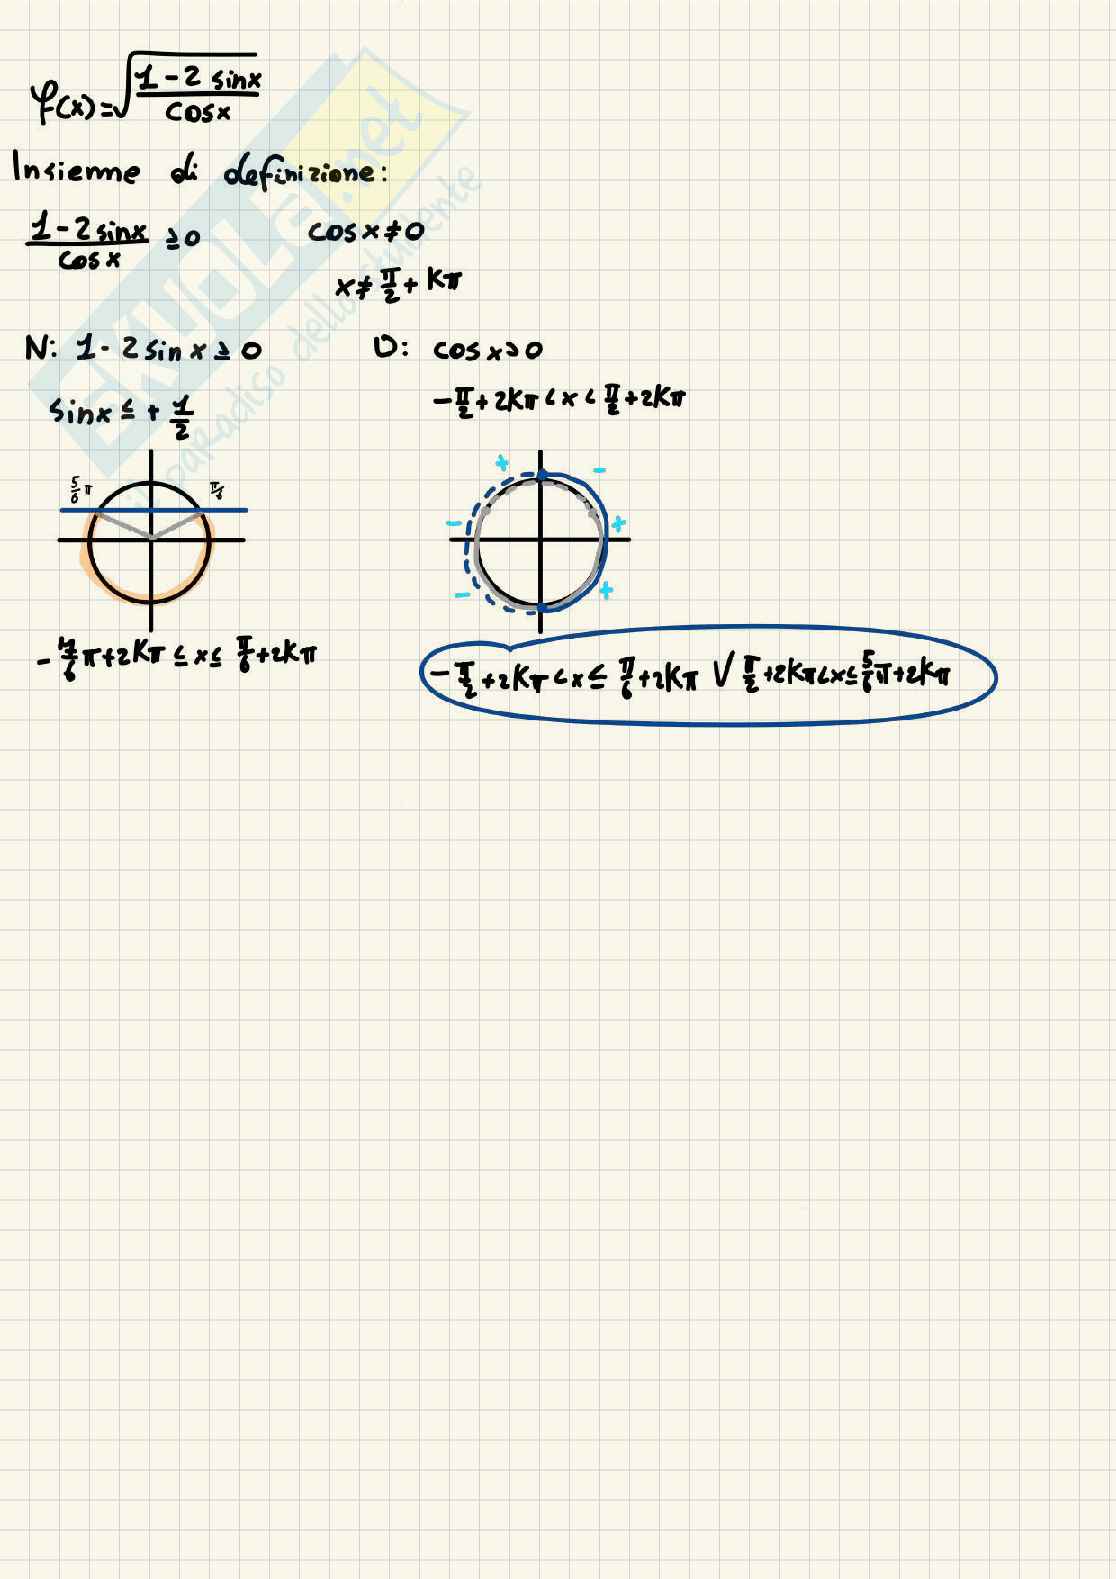 φ(x)=√((1-2 sinx)/cosx)
Insieme di definizione:
(1-2sinx)/cosx ≥0 cosx≠0
x≠ π/2 + Kπ
N: 1-2sinx≥0 D: cosx>0
sinx ≤ + 1/2 -π/2+2Kπ<x<π/2+2Kπ
5/6 π π/6
+ -
- +
- +
-7/6π+2Kπ ≤ x ≤ π/6+2Kπ
-π/2+2Kπ<x≤ π/6+2Kπ ∨ π/2+2Kπ<x≤5/6π+2Kπ
SKUOLA.net
il paradiso dello studente